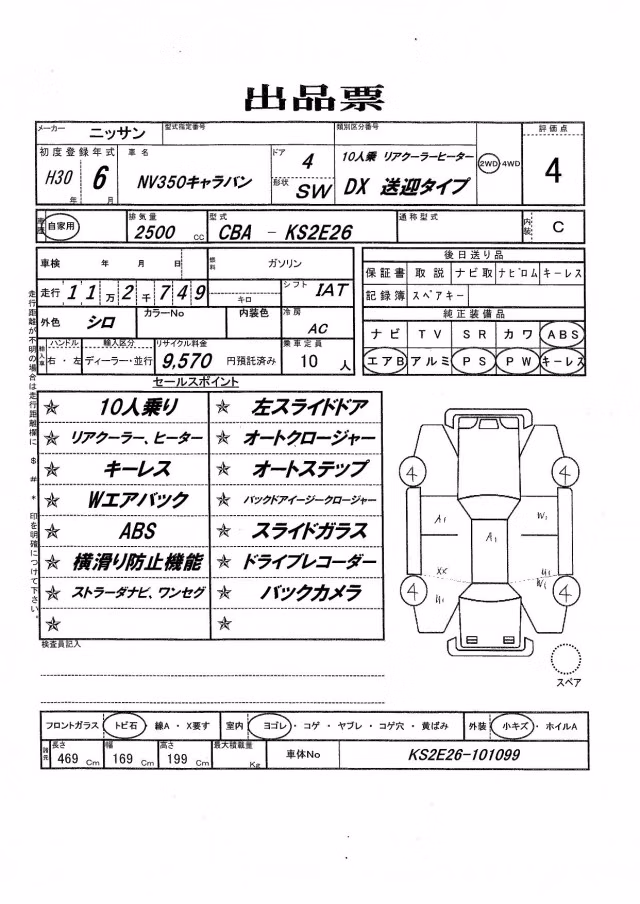 出品票
メーカー ニッサン 型式指定番号 類別区分番号 評価点
初度登録年式 車名 ドア 4 10人乗 リアクーラーヒーター 2WD 4WD 4
H30年 6月 NV350キャラバン 形状 SW DX 送迎タイプ
車歴 自家用 排気量 2500 cc 型式 CBA － KS2E26 通称型式 内装 C
車検 年 月 日 燃料 ガソリン 後日送り品
保証書 取説 ナビ取 ナビロム キーレス
走行 11万2千749 キロ シフト IAT 記録簿 スペアキー
外色 シロ カラーNo 内装色 冷房 AC 純正装備品
ナビ TV SR カワ ABS
輸入車 ハンドル 右・左 輸入区分 ディーラー・並行 リサイクル料金 9,570 円預託済み 乗車定員 10 人
エアB アルミ PS PW キーレス
セールスポイント
☆ 10人乗り ☆ 左スライドドア
☆ リアクーラー、ヒーター ☆ オートクロージャー
☆ キーレス ☆ オートステップ
☆ Wエアバック ☆ バックドアイージークロージャー
☆ ABS ☆ スライドガラス
☆ 横滑り防止機能 ☆ ドライブレコーダー
☆ ストラーダナビ、ワンセグ ☆ バックカメラ
☆ ☆
走行距離が不明の場合は走行距離欄に $ # * 印を明確につけて下さい。
4 4
A1 A1 W1
XX U1
4 U1 W1 4
スペア
検査員記入
フロントガラス トビ石・線A・X要す 室内 ヨゴレ・コゲ・ヤブレ・コゲ穴・黄ばみ 外装 小キズ・ホイルA
諸元 長さ 469 Cm 幅 169 Cm 高さ 199 Cm 最大積載量 Kg 車体No KS2E26-101099